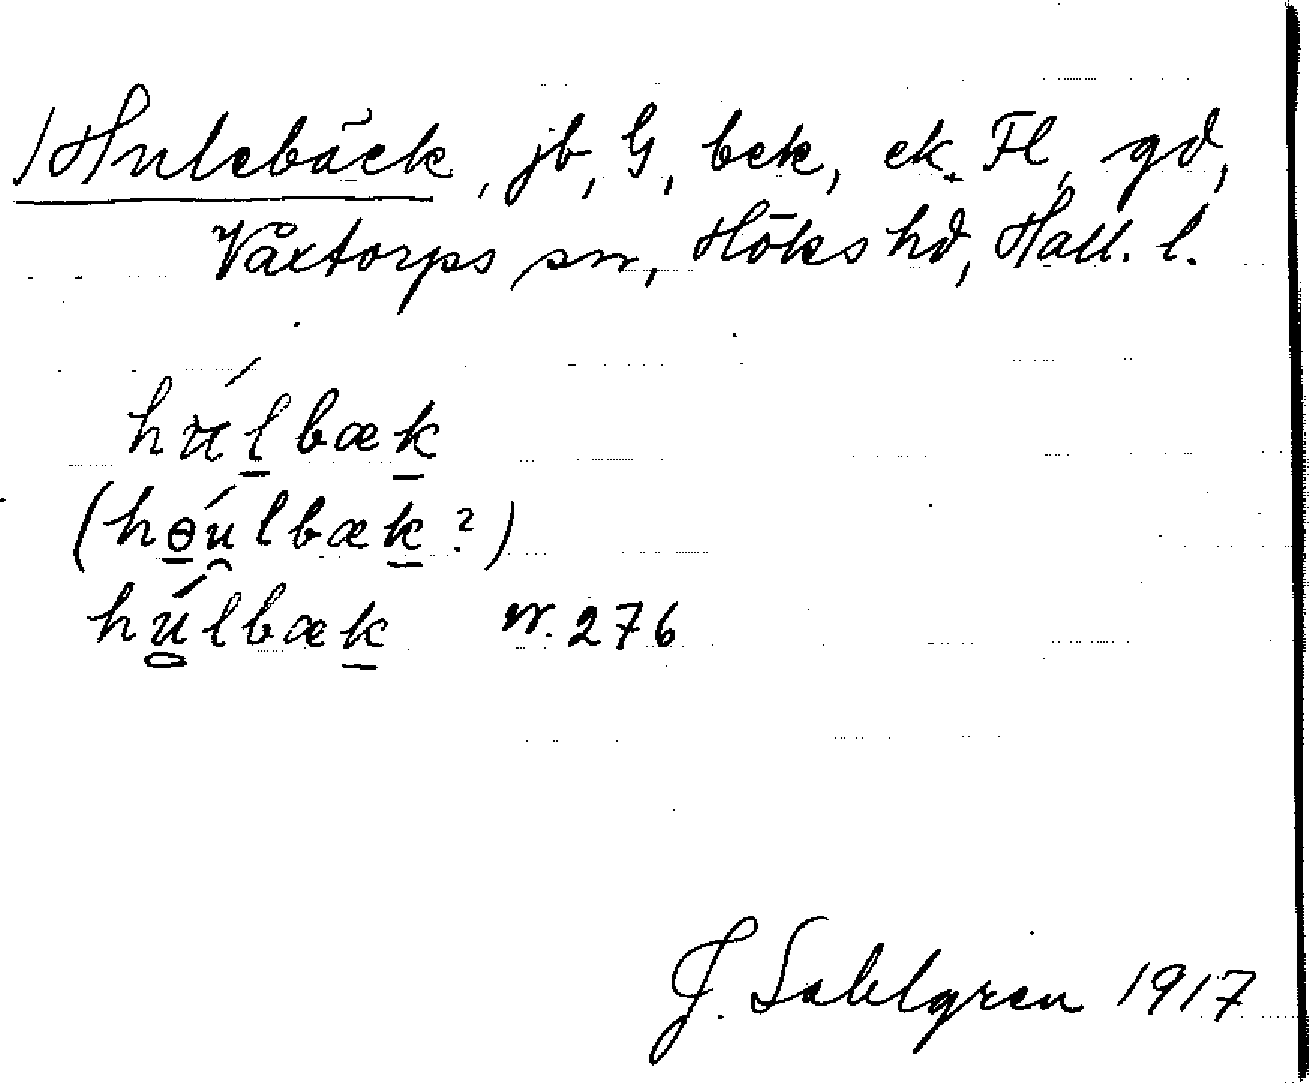 /Hulebäck, jb, G, bek, ek. Fl, gd,
Våxtorps sn, Höks hd, Hall. l.
húl̲bæk̲
(hɵ̲úlbæk̲?)
húlbæk̲ nr. 276
J. Sahlgren 1917